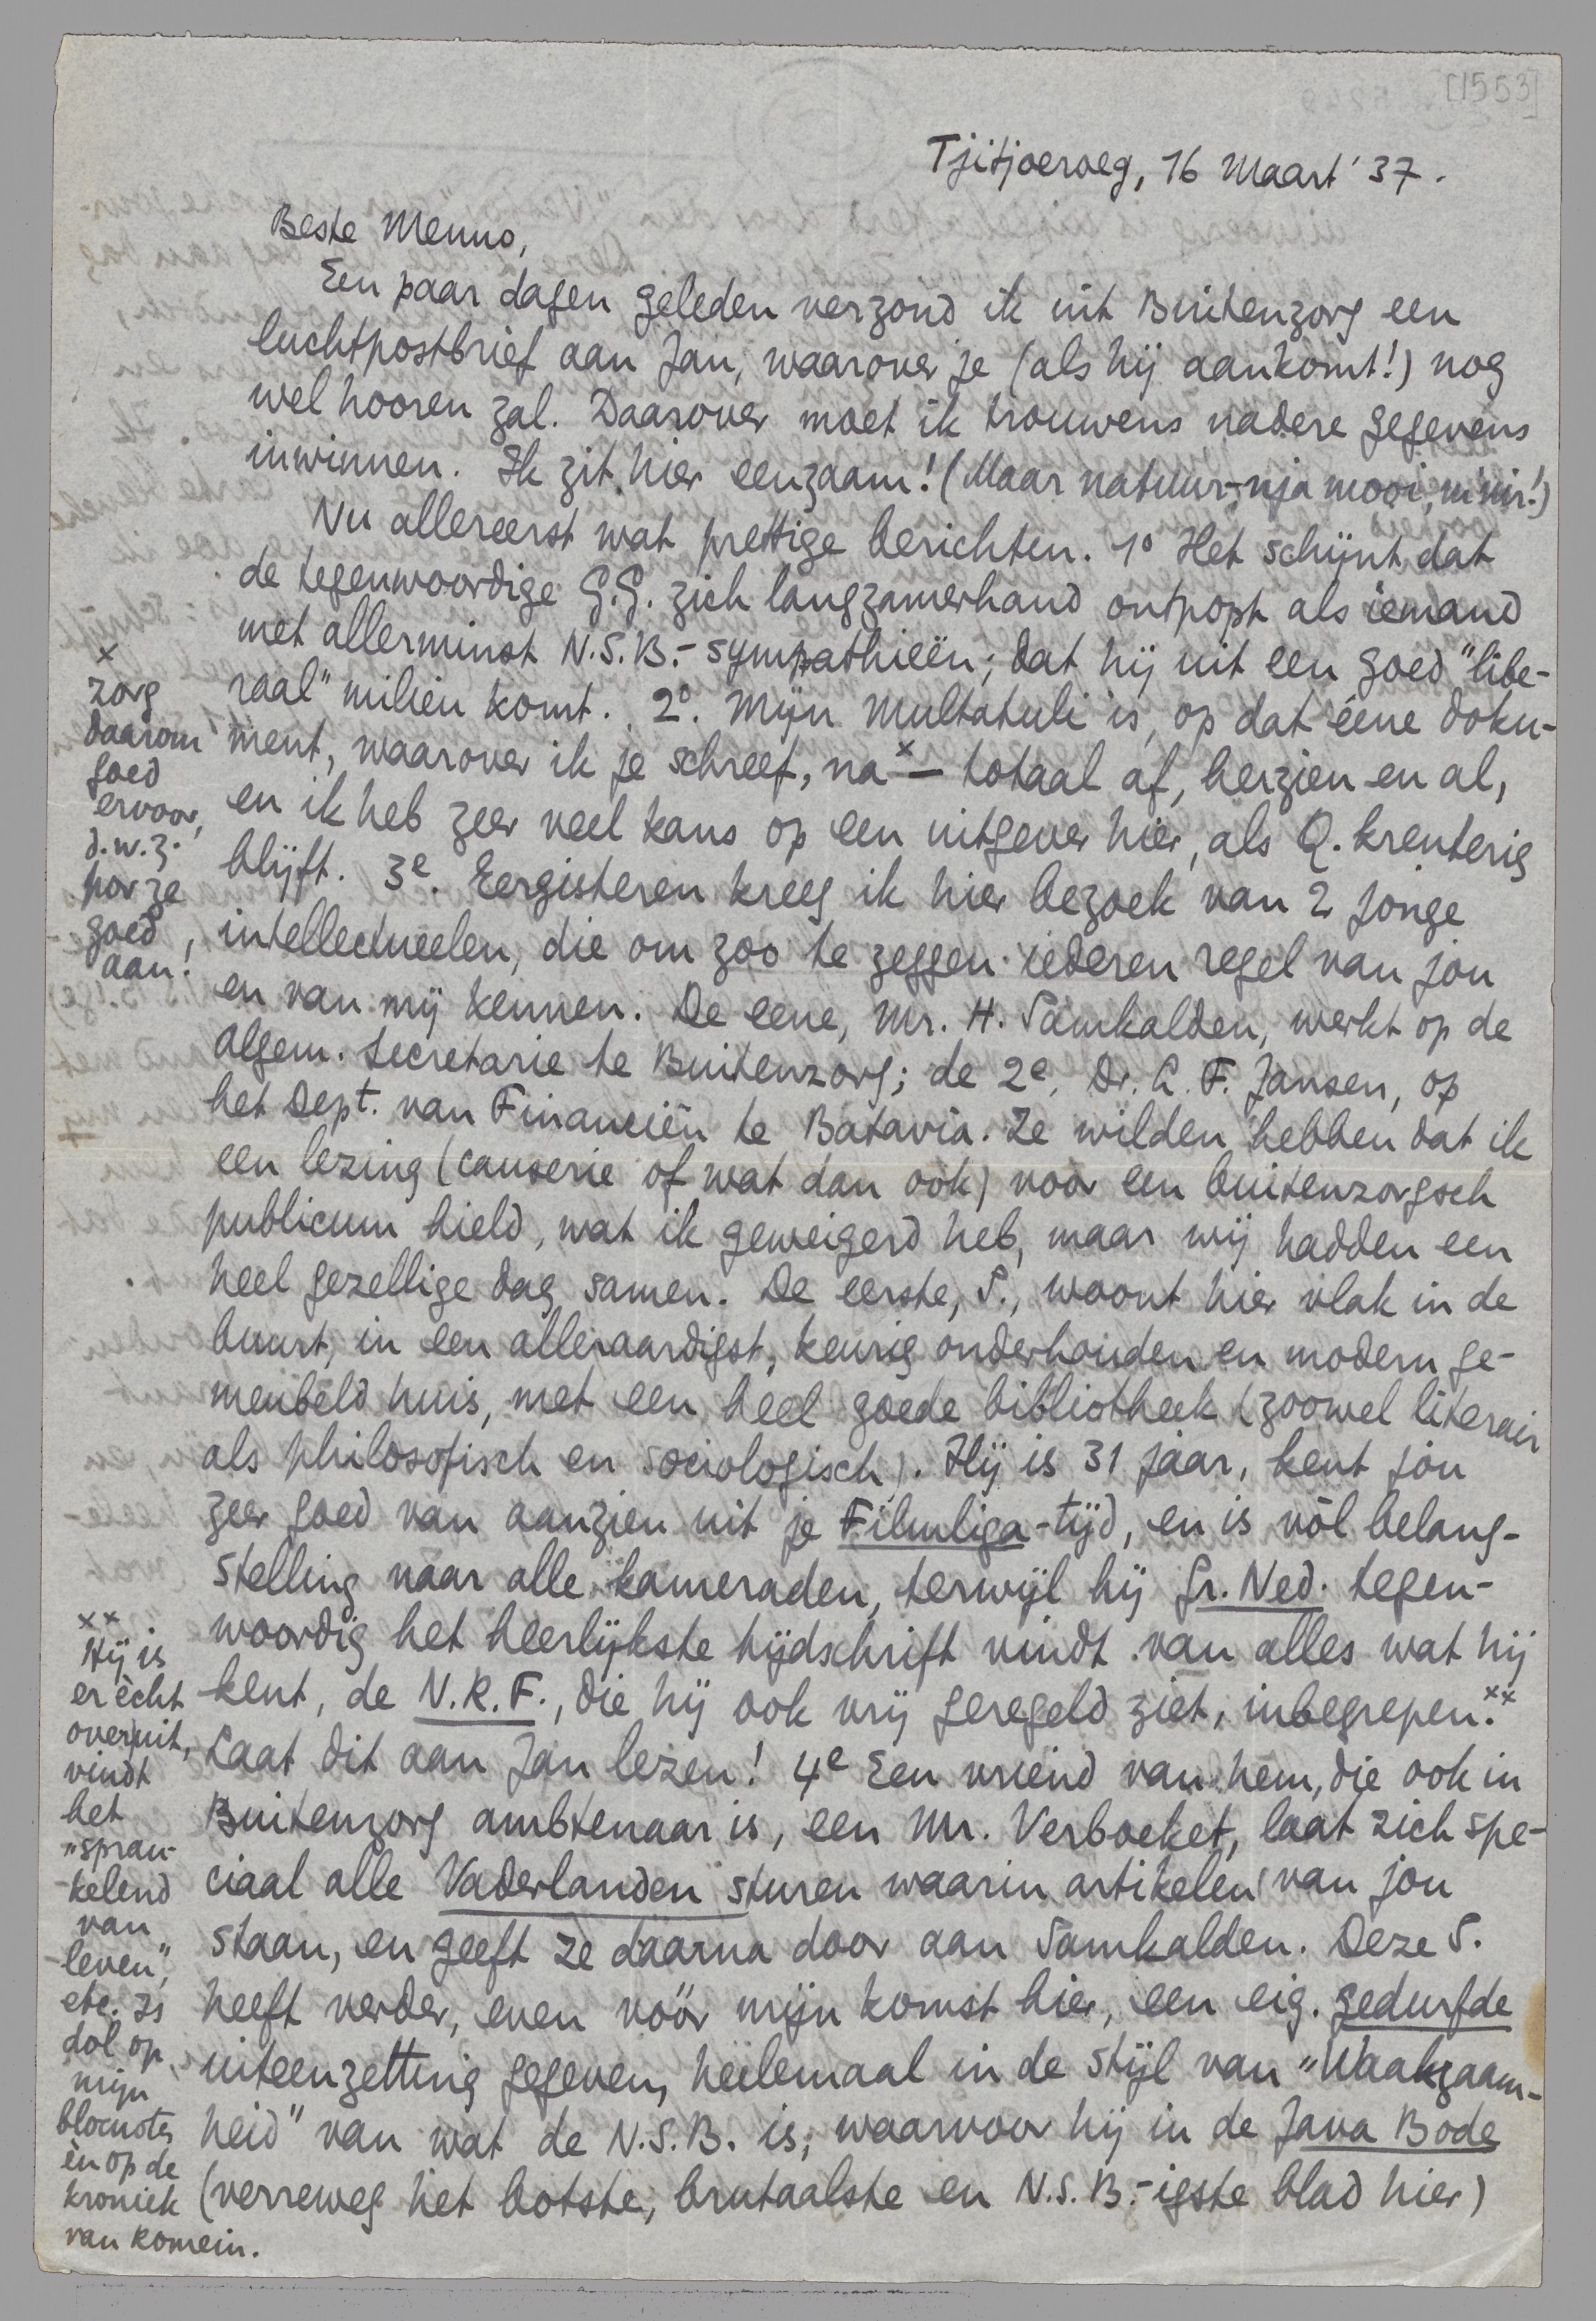 [1553]
Tjitjoeroeg, 16 Maart '37.
Beste Menno,
Een paar dagen geleden verzond ik uit Buitenzorg een
luchtpostbrief aan Jan, waarover je (als hij aankomt!) nog
wel hooren zal. Daarover moet ik trouwens nadere gegevens
inwinnen. Ik zit hier eenzaam! (Maar natuur-nja mooi, m'nir!)
Nu allereerst wat prettige berichten. 1° Het schijnt dat
de tegenwoordige G.G. zich langzamerhand ontpopt als iemand
met allerminst N.S.B.-sympathieën; dat hij uit een goed "libe-
raal" milieu komt. 2°. Mijn Multatuli is, op dat ééne doku-
ment, waarover ik je schreef, na x — totaal af, herzien en al,
en ik heb zeer veel kans op een uitgever hier, als Q. krenterig
blijft. 3e. Eergisteren kreeg ik hier bezoek van 2 jonge
intellectueelen, die om zoo te zeggen iederen regel van jou
en van mij kennen. De eene, Mr. H. Samkalden, werkt op de
Algem. Secretarie te Buitenzorg; de 2e, Dr. L. F. Jansen, op
het Dept. van Financiën te Batavia. Ze wilden hebben dat ik
een lezing (causerie of wat dan ook) voor een buitenzorgsch
publicum hield, wat ik geweigerd heb, maar wij hadden een
heel gezellige dag samen. De eerste, S., woont hier vlak in de
buurt, in een alleraardigst, keurig onderhouden en modern ge-
meubeld huis, met een heel goede bibliotheek (zoowel literair
als philosofisch en sociologisch). Hij is 31 jaar, kent jou
zeer goed van aanzien uit je Filmliga-tijd, en is vòl belang-
stelling naar alle kameraden, terwijl hij Gr. Ned. tegen-
woordig het heerlijkste tijdschrift vindt van alles wat hij
kent, de N.R.F., die hij ook vrij geregeld ziet, inbegrepen. xx
Laat dit aan Jan lezen! 4e Een vriend van hem, die ook in
Buitenzorg ambtenaar is, een Mr. Verboeket, laat zich spe-
ciaal alle Vaderlanden sturen waarin artikelen van jou
staan, en geeft ze daarna door aan Samkalden. Deze S.
heeft verder, even vóór mijn komst hier, een eig. gedurfde
uiteenzetting gegeven, heelemaal in de stijl van "Waakzaam-
heid" van wat de N.S.B. is; waarvoor hij in de Java Bode
(verreweg het botste, brutaalste en N.S.B.-igste blad hier)
x
zorg
daarom
goed
ervoor,
d.w.z.
por ze
goed
aan!
xx
Hij is
er ècht
over uit,
vindt
het
"spran-
kelend
van
leven",
etc. Is
dol op
mijn
blocnotes
èn op de
kroniek
van Romein.